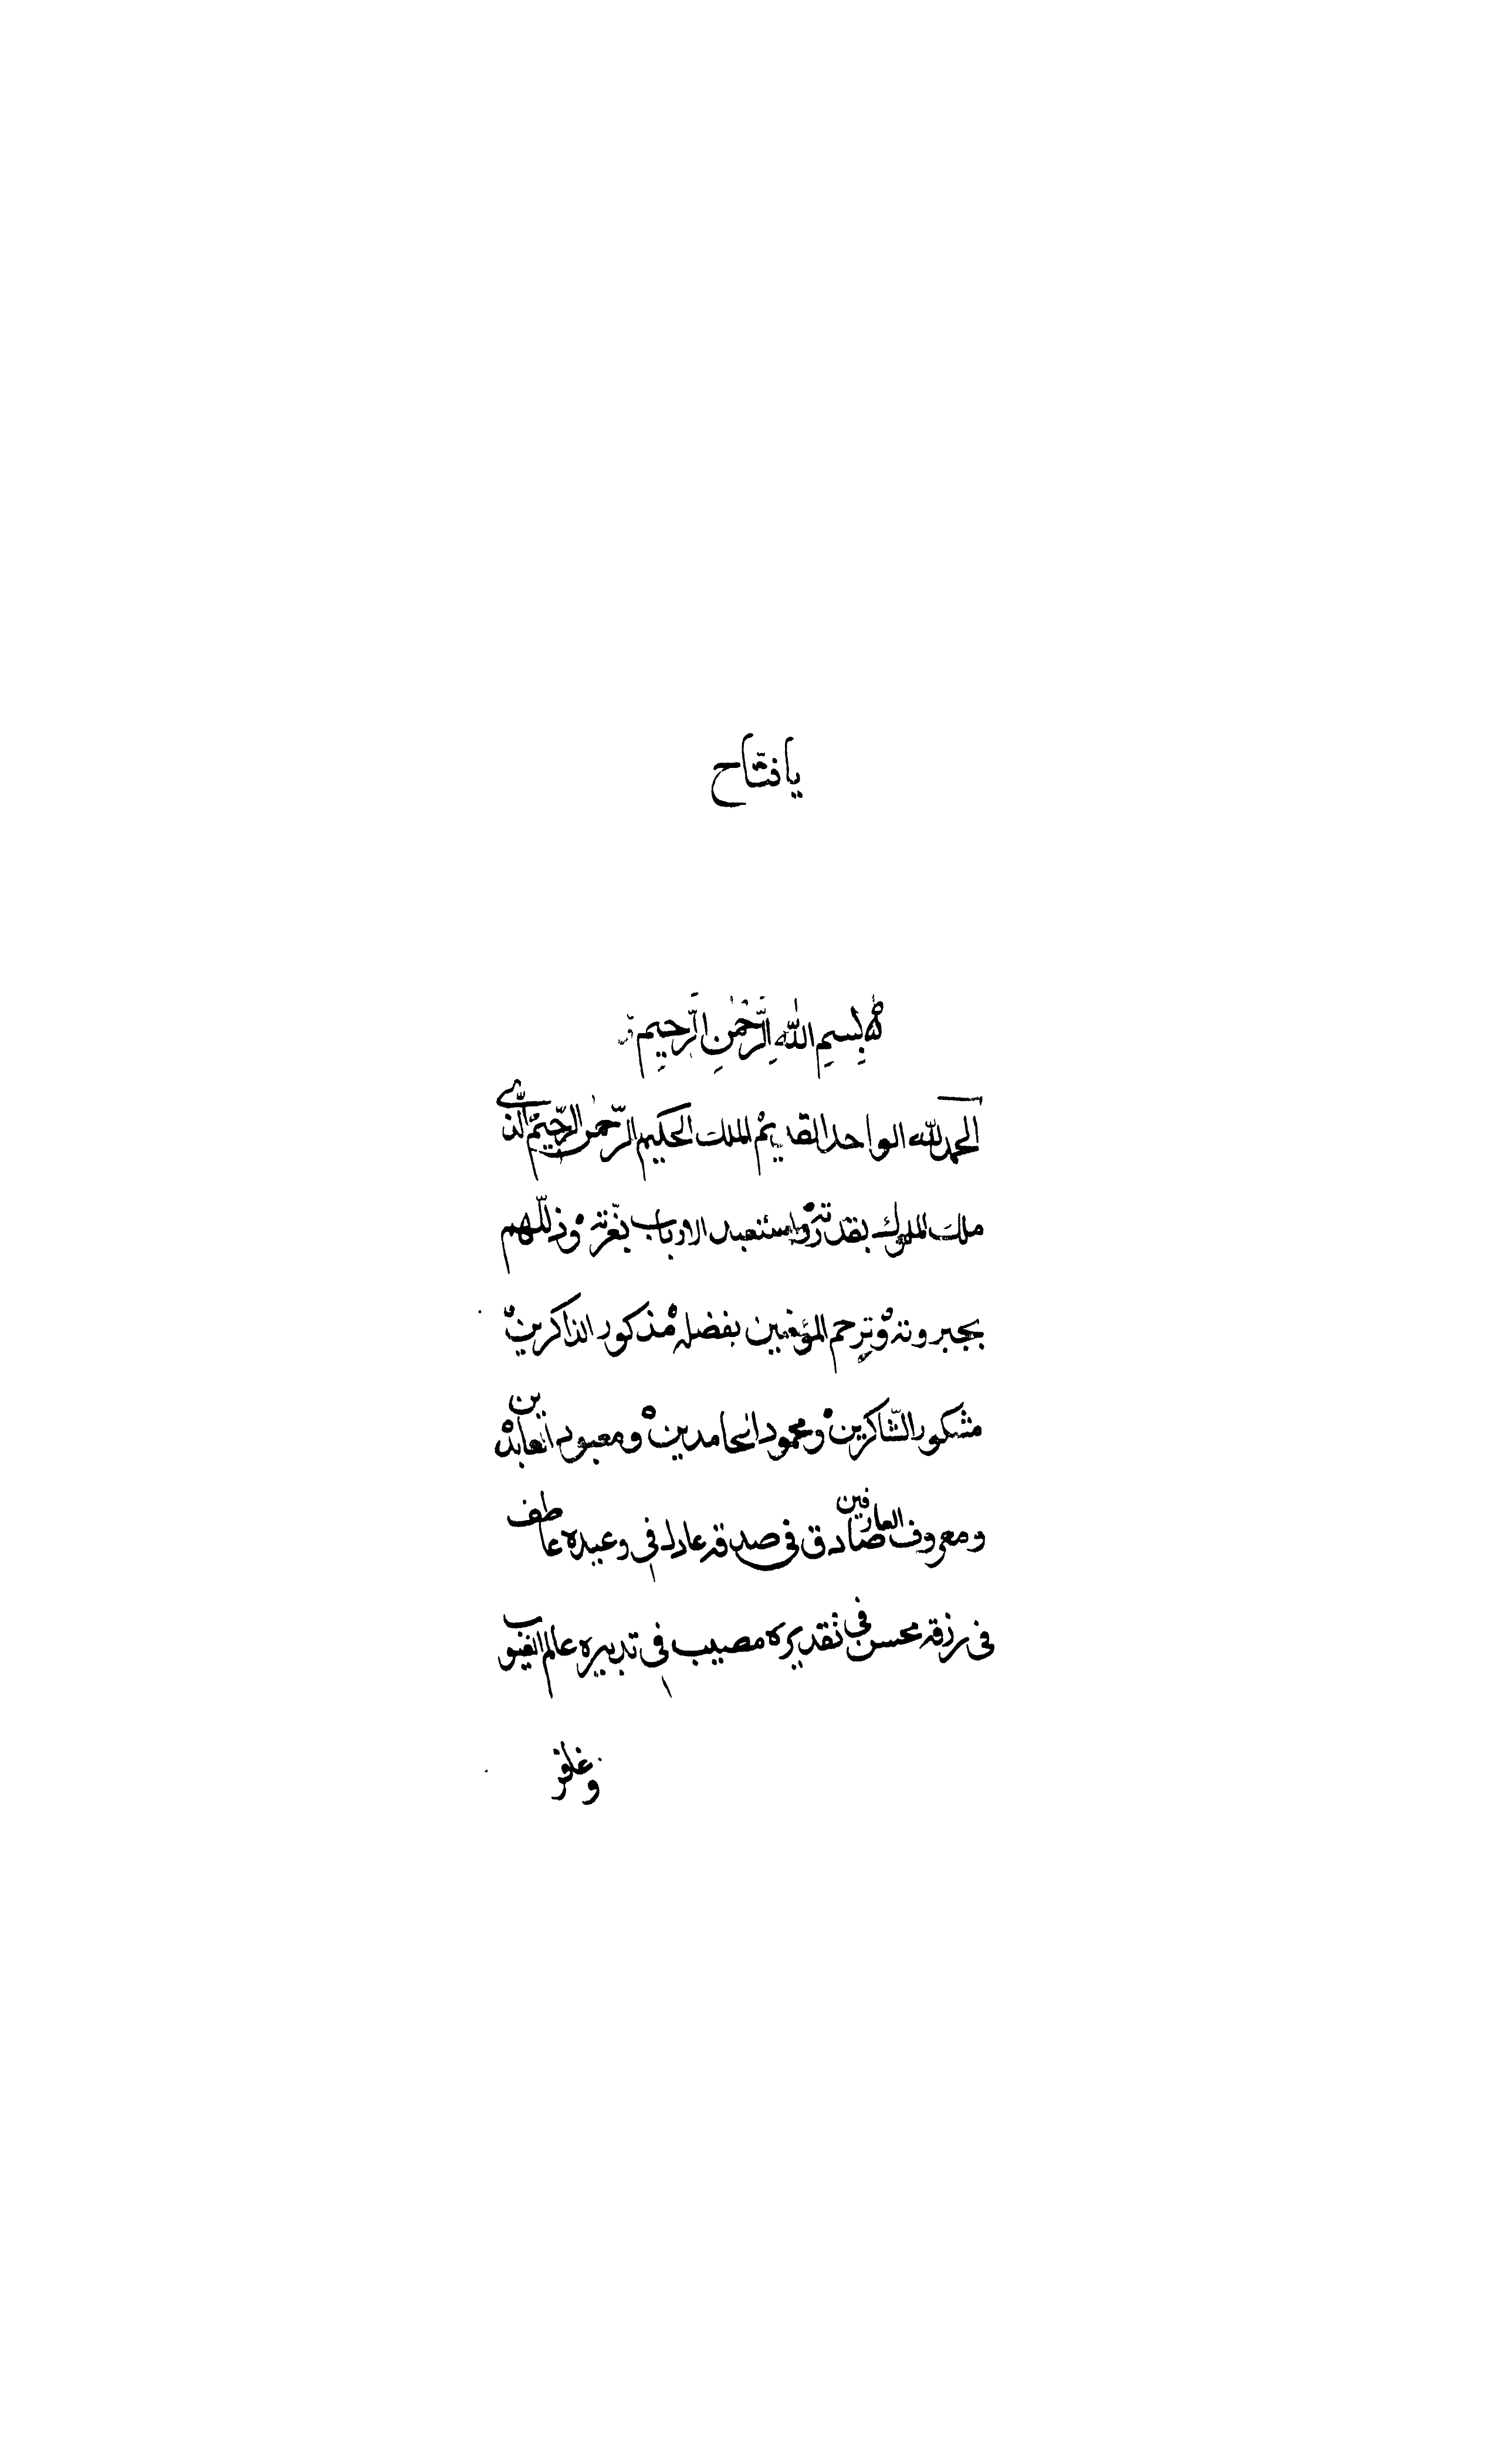 يا فتّاح
بِسمِ اللهِ الرَّحْمٰنِ الرَّحِيمِ
الحمد لله الواحد القديم الملك الحكيم الرّحمٰن الرّحيم الّذى
ملك الملوك بقدرته واستعبد الارباب بعزّته وذلّلهم
بجبروته وترحم المؤمنين بفضله مذكور الذاكرين
مشكور الشّاكرين ومحمود الحامدين ومعبود العابدين
ومعروف العارفين صادق فى صدقه عادل فى وعيده عاطف
فى رزقه محسن فى تقديره مصيب فى تدبيره عالم الغيوب
وغافر